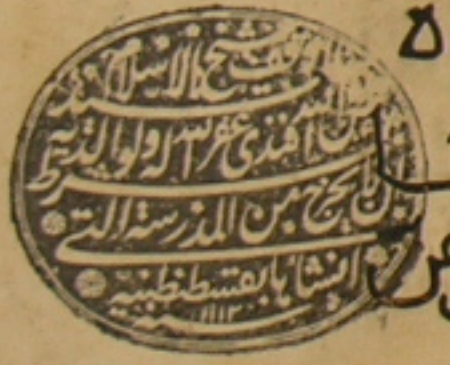 ٥
وقف شيخ الاسلام
السيد فيض الله افندى غفر الله له ولوالديه
بشرط ان لا يخرج من المدرسة التى
انشاها بقسطنطينية
سنه ١١١٣